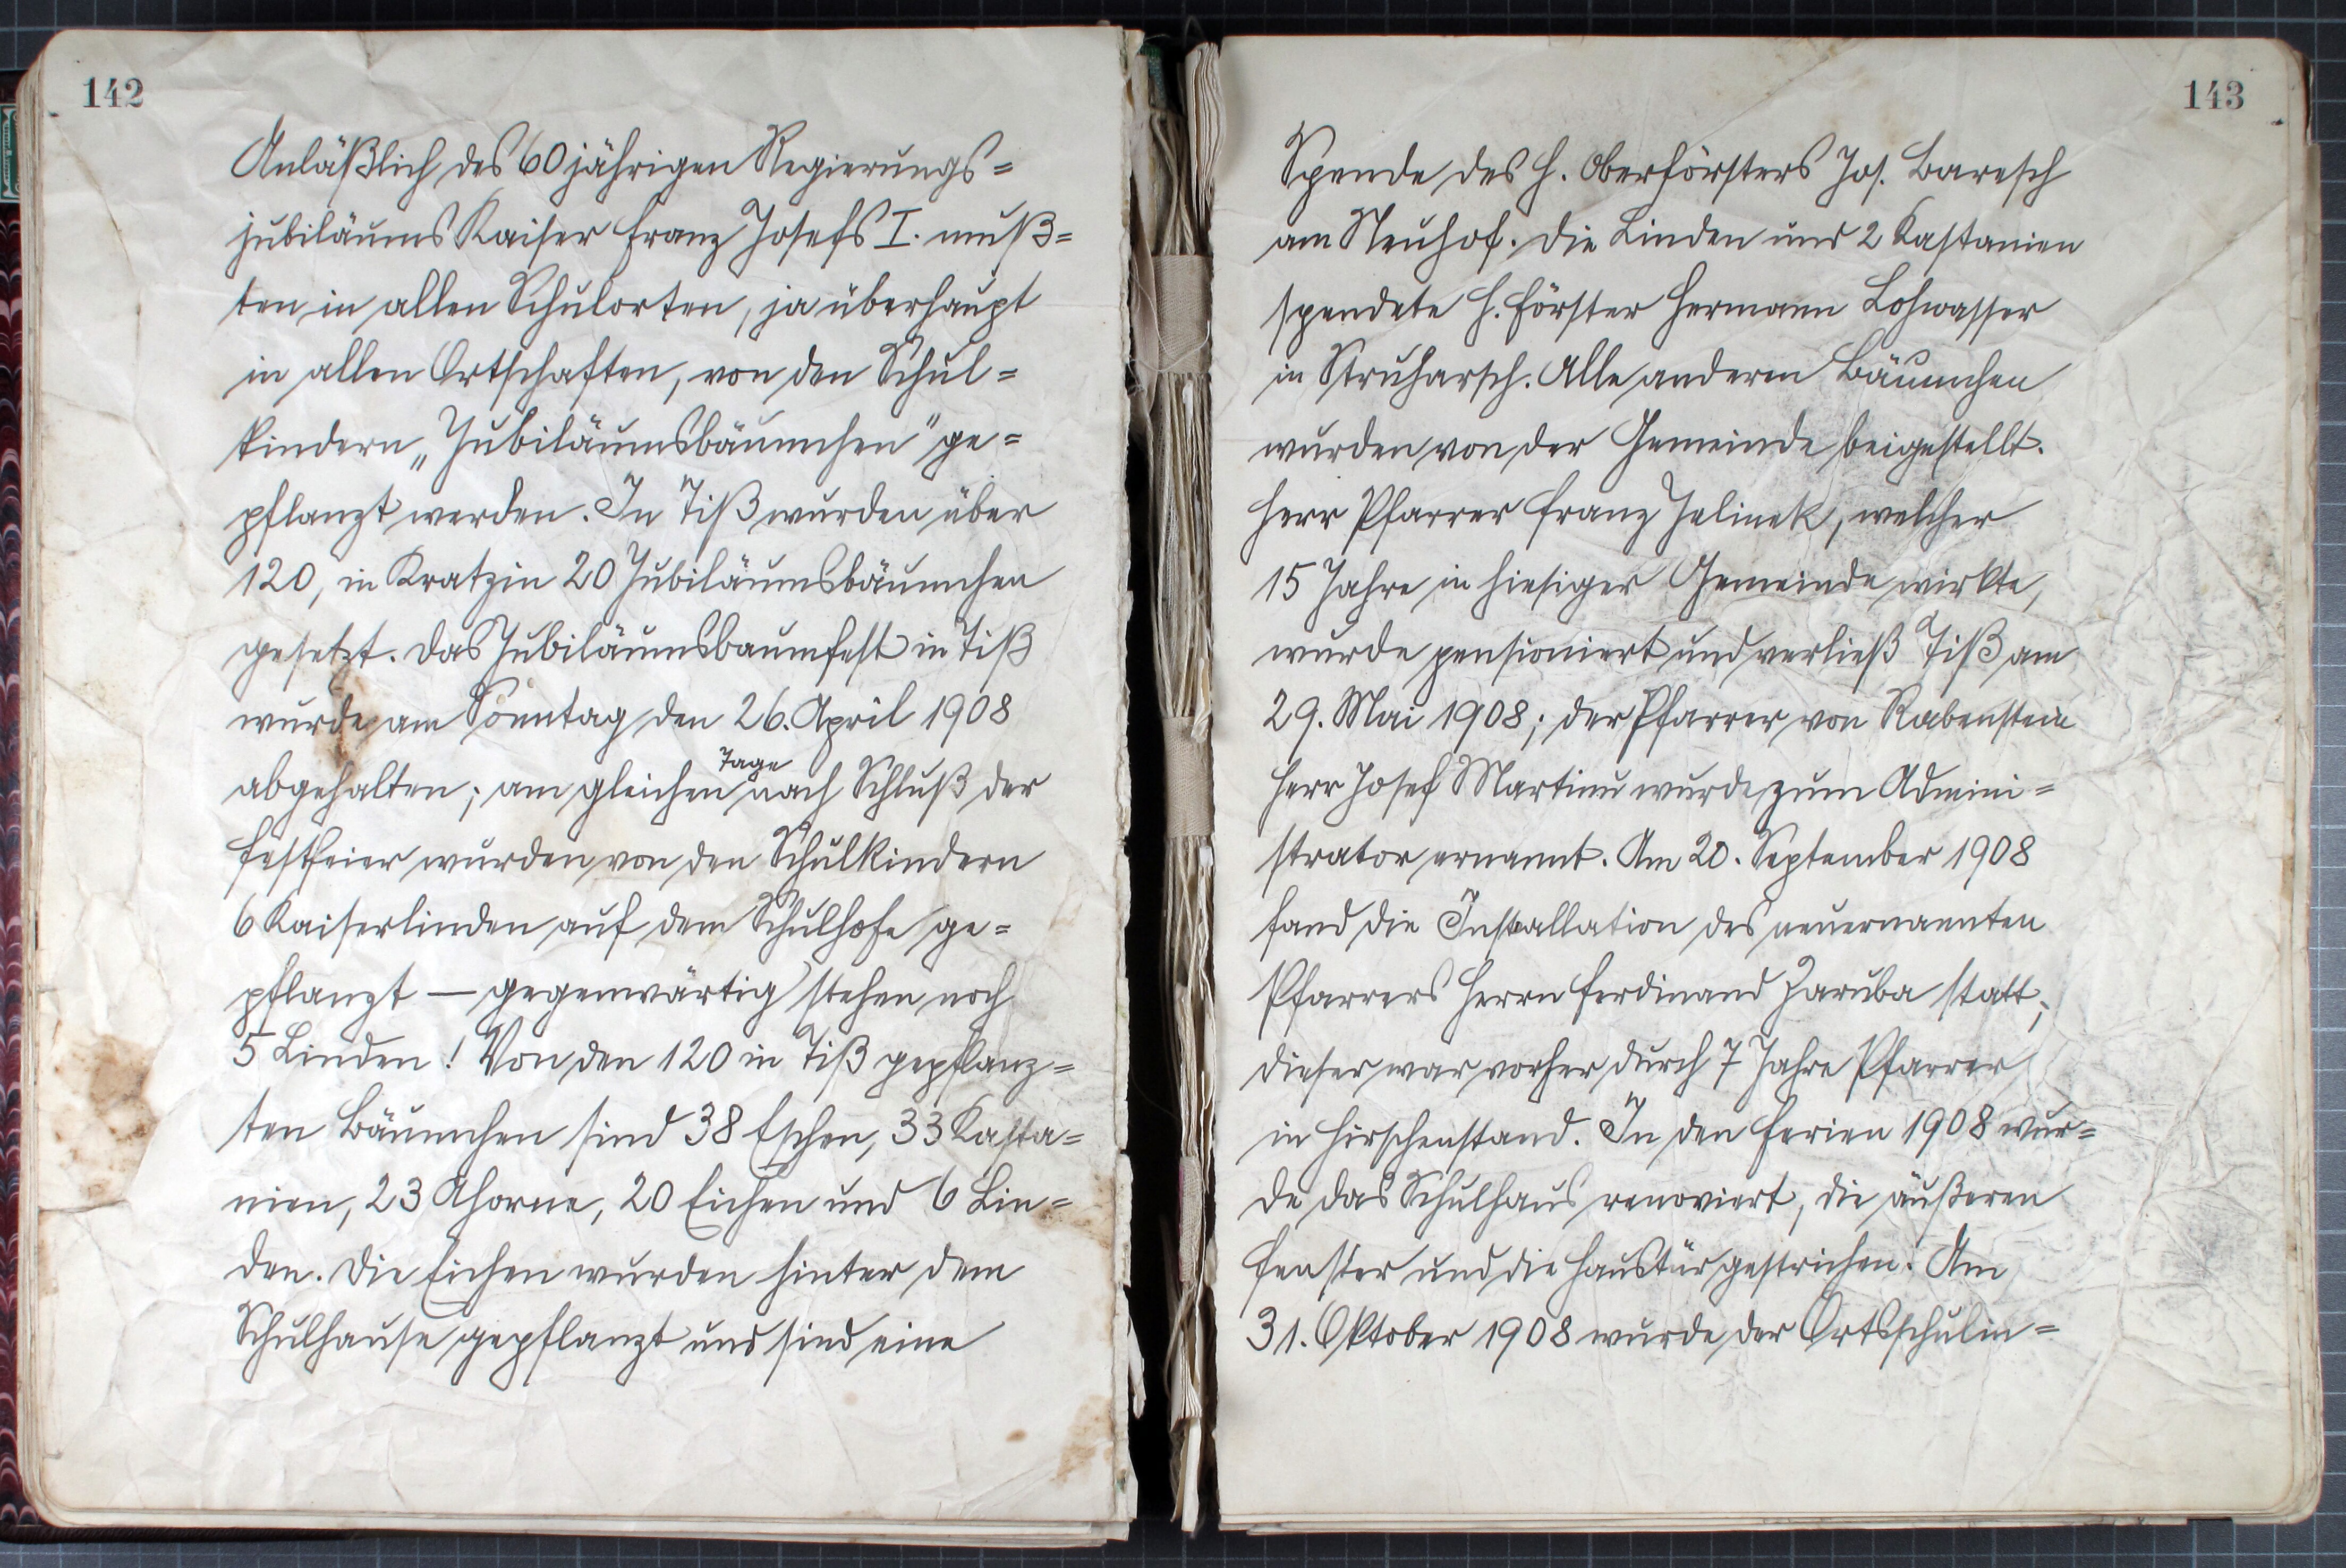 142
Anläßlich des 60jährigen Regierungs=
jubiläums Kaiser Franz Josefs I. muß=
ten in allen Schulorten, ja überhaupt
in allen Ortschaften, von den Schul=
kindern „Jubiläumsbäumchen" ge=
pflanzt werden. In Tiß wurden über
120, in Kratzin 20 Jubiläumsbäumchen
gesetzt. Das Jubiläumsbaumfest in Tiß
wurde am Sonntag den 26. April 1908
abgehalten; am gleichen Tage nach Schluß der
Festfeier wurden von den Schulkindern
6 Kaiserlinden auf dem Schulhofe ge=
pflanzt — gegenwärtig stehen noch
5 Linden! Von den 120 in Tiß gepflanz=
ten Bäumchen sind 38 Eschen, 33 Kasta=
nien, 23 Ahorne, 20 Eichen und 6 Lin=
den. Die Eichen wurden hinter dem
Schulhause gepflanzt und sind eine
143
Spende des H. Oberförsters Jos. Baresch
am Neuhof. Die Linden und 2 Kastanien
spendete H. Förster Hermann Lohwasser
in Struharsch. Alle anderen Bäumchen
wurden von der Gemeinde beigestellt.
Herr Pfarrer Franz Jelinek, welcher
15 Jahre in hiesiger Gemeinde wirkte,
wurde pensioniert und verließ Tiß am
29. Mai 1908; der Pfarrer von Rabenstein
Herr Josef Martinu wurde zum Admini=
strator ernannt. Am 20. September 1908
fand die Installation des neuernannten
Pfarrers Herrn Ferdinand Zaruba statt;
dieser war vorher durch 7 Jahre Pfarrer
in Hirschenstand. In den Ferien 1908 wur=
de das Schulhaus renoviert, die äußeren
Fenster und die Haustür gestrichen. Am
31. Oktober 1908 wurde der Ortsschulin=